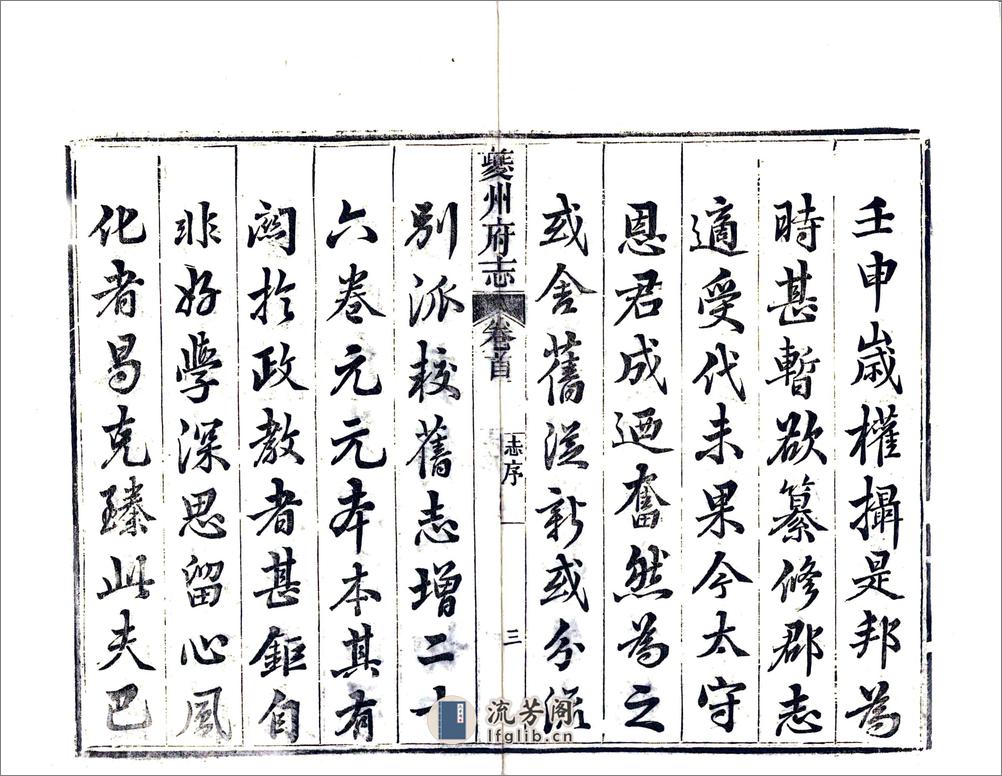 壬申歲權攝是邦為
時甚暫欲纂修郡志
適受代未果今太守
恩君成迺奮然為之
或舍舊從新或分源
夔州府志 卷首 志序 三
別派校舊志增二十
六卷元元本本其有
關於政教者甚鉅自
非好學深思留心風
化者曷克臻此夫巴
流芳阁
lfglib.cn